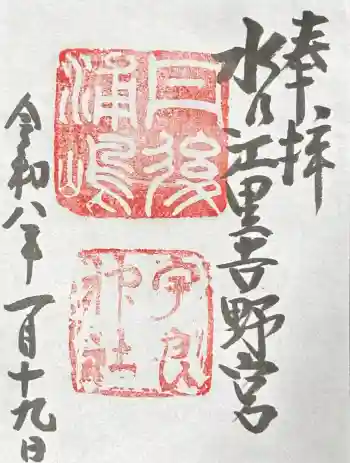 奉拝
水日江里吉野宮
丹後
浦嶋
宇良
神社
令和八年一月十九日